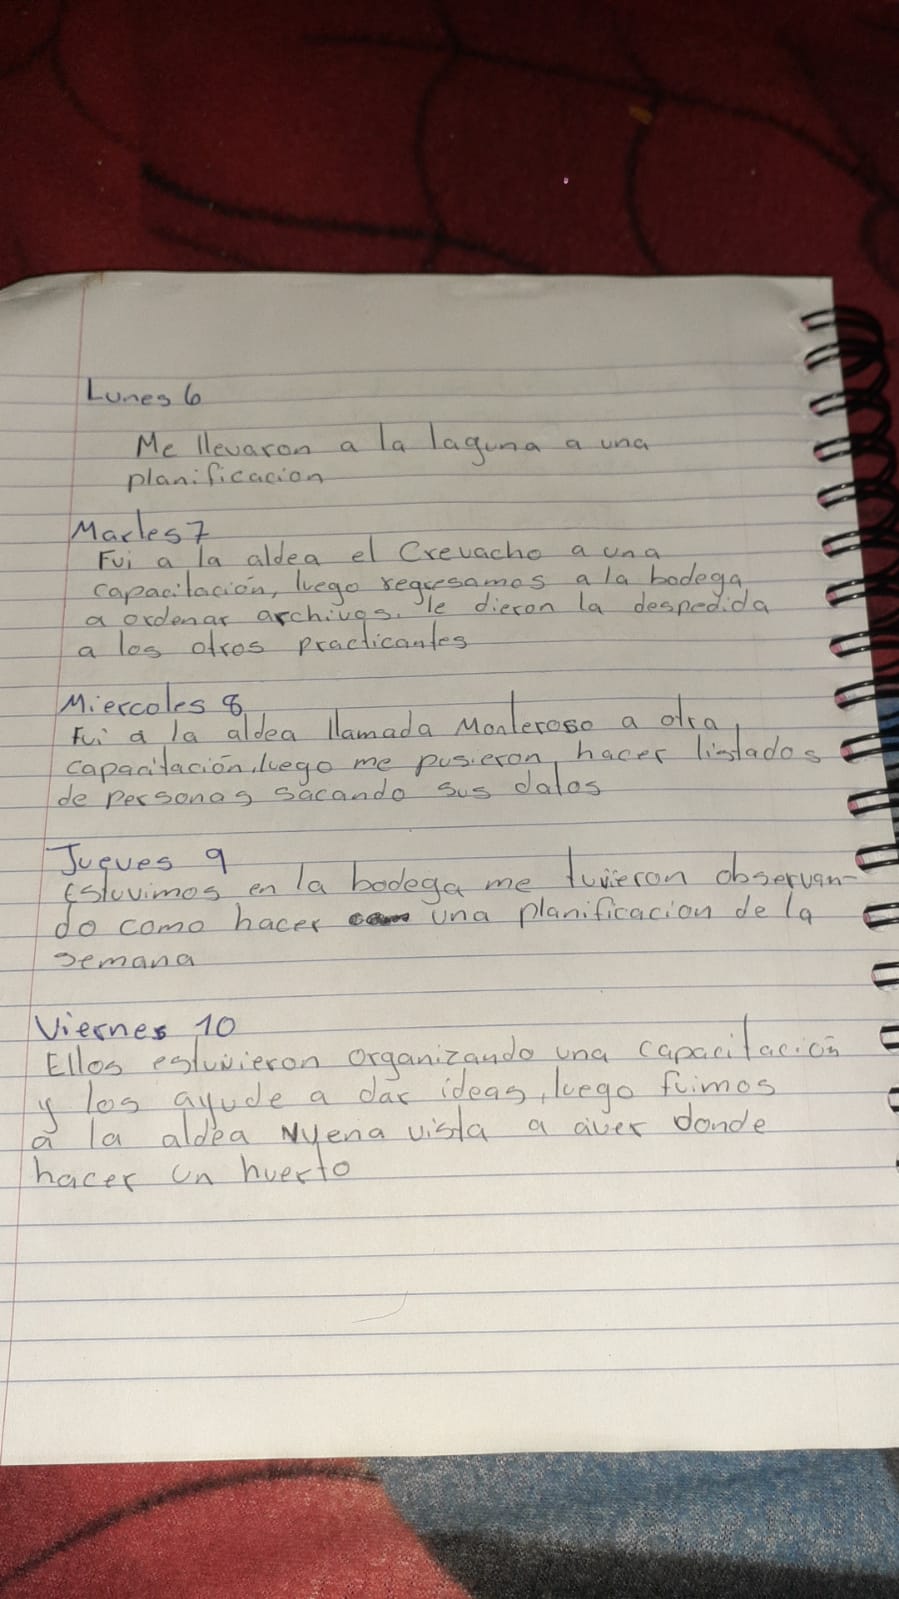 Lunes 6
Me llevaron a la laguna a una
planificacion
Martes 7
Fui a la aldea el Crevacho a una
capacitación, luego regresamos a la bodega
a ordenar archivos. le dieron la despedida
a los otros practicantes
Miercoles 8
Fui a la aldea llamada Monteroso a otra
capacitación, luego me pusieron hacer listados
de personas sacando sus datos
Jueves 9
Estuvimos en la bodega me tuvieron observan-
do como hacer una planificacion de la
semana
Viernes 10
Ellos estuvieron organizando una capacitación
y los ayude a dar ideas, luego fuimos
a la aldea Nuena vista a aver donde
hacer un huerto